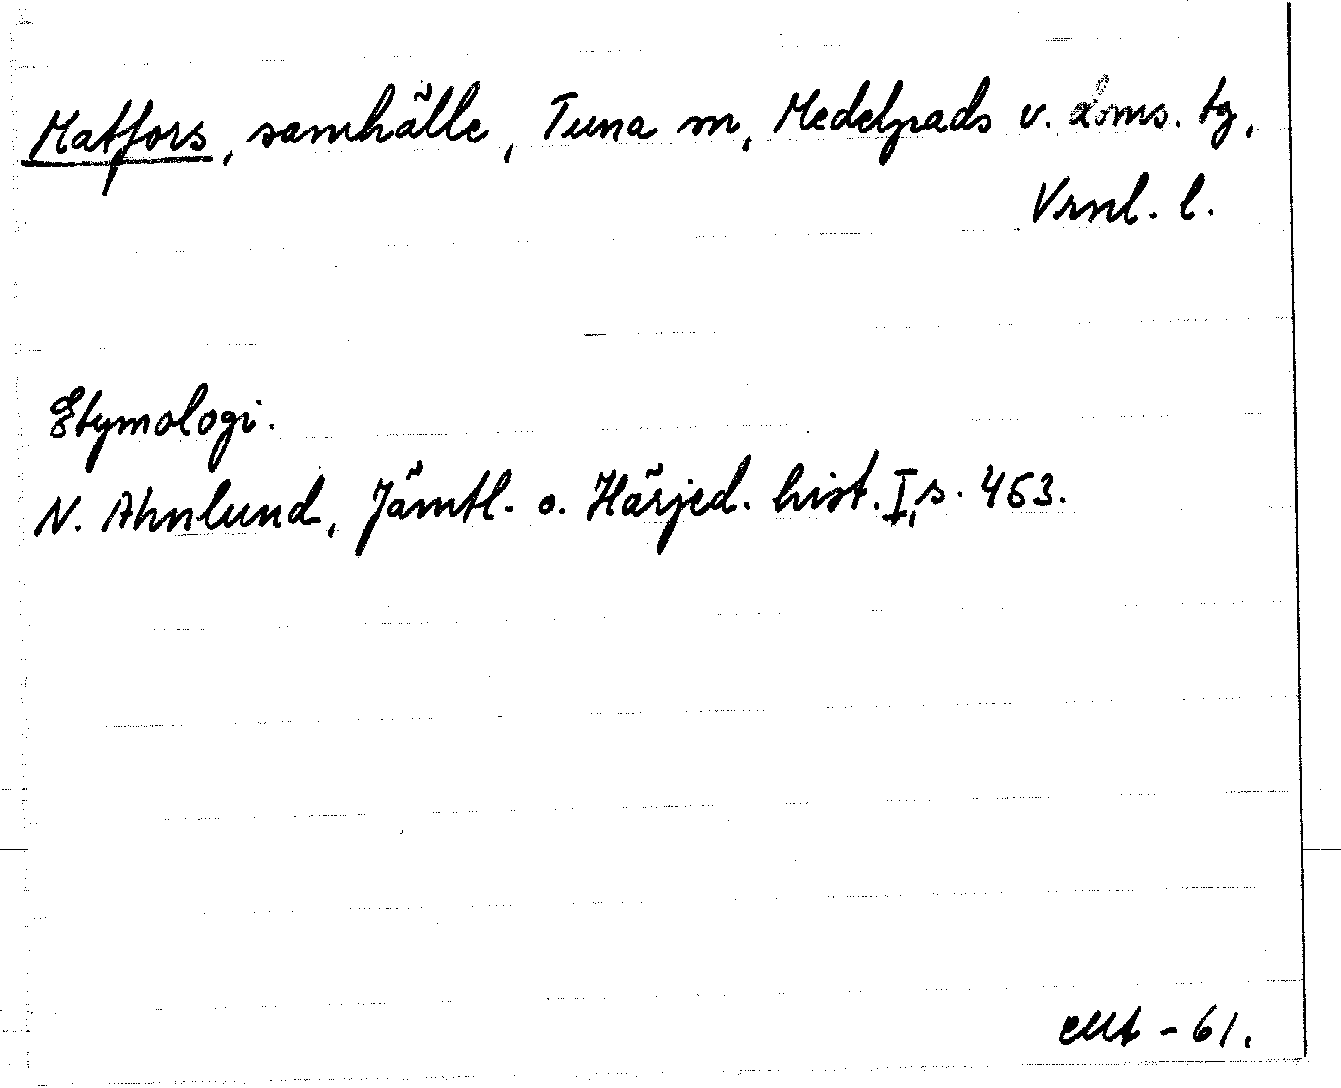 Matfors, samhälle, Tuna sn, Medelpads v. doms. tg,
Vrnl. l.
Etymologi.
N. Ahnlund, Jämtl. o. Härjed. hist. I, s. 453.
-61.